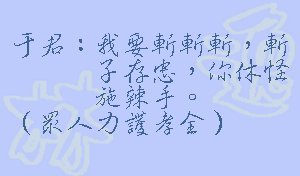 于君：我要斬斬斬，斬
子存忠，你休怪
施辣手。
（眾人力護孝全）